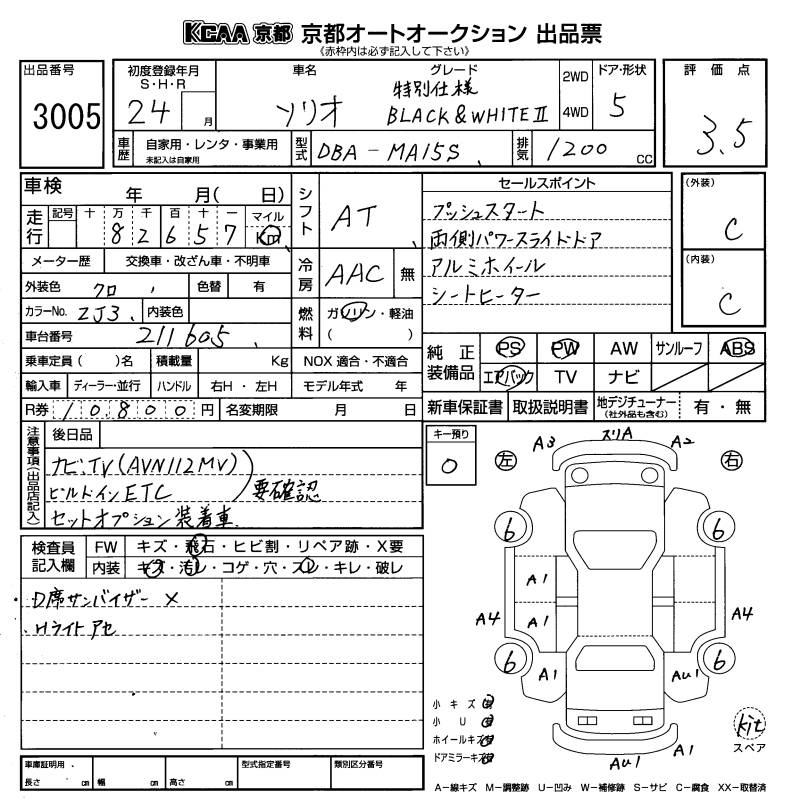 KCAA 京都 京都オートオークション 出品票
《赤枠内は必ず記入して下さい》
出品番号
3005
初度登録年月
S・H・R
24 月
車名
ソリオ
グレード
特別仕様
BLACK & WHITE Ⅱ
2WD
4WD
ドア・形状
5
評価点
3.5
車歴
自家用・レンタ・事業用
未記入は自家用
型式
DBA-MA15S
排気
1200 CC
車検 年 月( 日)
シフト
AT
セールスポイント
プッシュスタート
両側パワースライドドア
アルミホイール
シートヒーター
(外装)
C
(内装)
C
走行
記号 十 万 千 百 十 一 マイル
8 2 6 5 7 Km
メーター歴 交換車・改ざん車・不明車
冷房
AAC 無
外装色 クロ 色替 有
カラーNo. ZJ3 内装色
燃料
ガソリン・軽油
( )
車台番号 211605
乗車定員( )名 積載量 Kg NOX 適合・不適合
輸入車 ディーラー・並行 ハンドル 右H・左H モデル年式 年
R券 10,800 円 名変期限 月 日
純正装備品
PS PW AW サンルーフ ABS
エアバック TV ナビ
新車保証書 取扱説明書 地デジチューナー (社外品も含む) 有・無
注意事項(出品店記入)
後日品
ナビTV(AVN112MV)
ビルドインETC
要確認
セットオプション装着車
キー預り
0
検査員記入欄
FW キズ・飛石・ヒビ割・リペア跡・X要
内装 キズ・汚レ・コゲ・穴・スレ・キレ・破レ
・D席サンバイザー X
・Hライトアセ
左
右
A3 スリA A2
6 6
A1
A1
A4 A4
6 6
A1 AU1
AU1 A1
小キズ
小U
ホイールキズ
ドアミラーキズ
kit
スペア
車庫証明用
長さ cm 幅 cm 高さ cm
型式指定番号
類別区分番号
A-線キズ M-調整跡 U-凹み W-補修跡 S-サビ C-腐食 XX-取替済